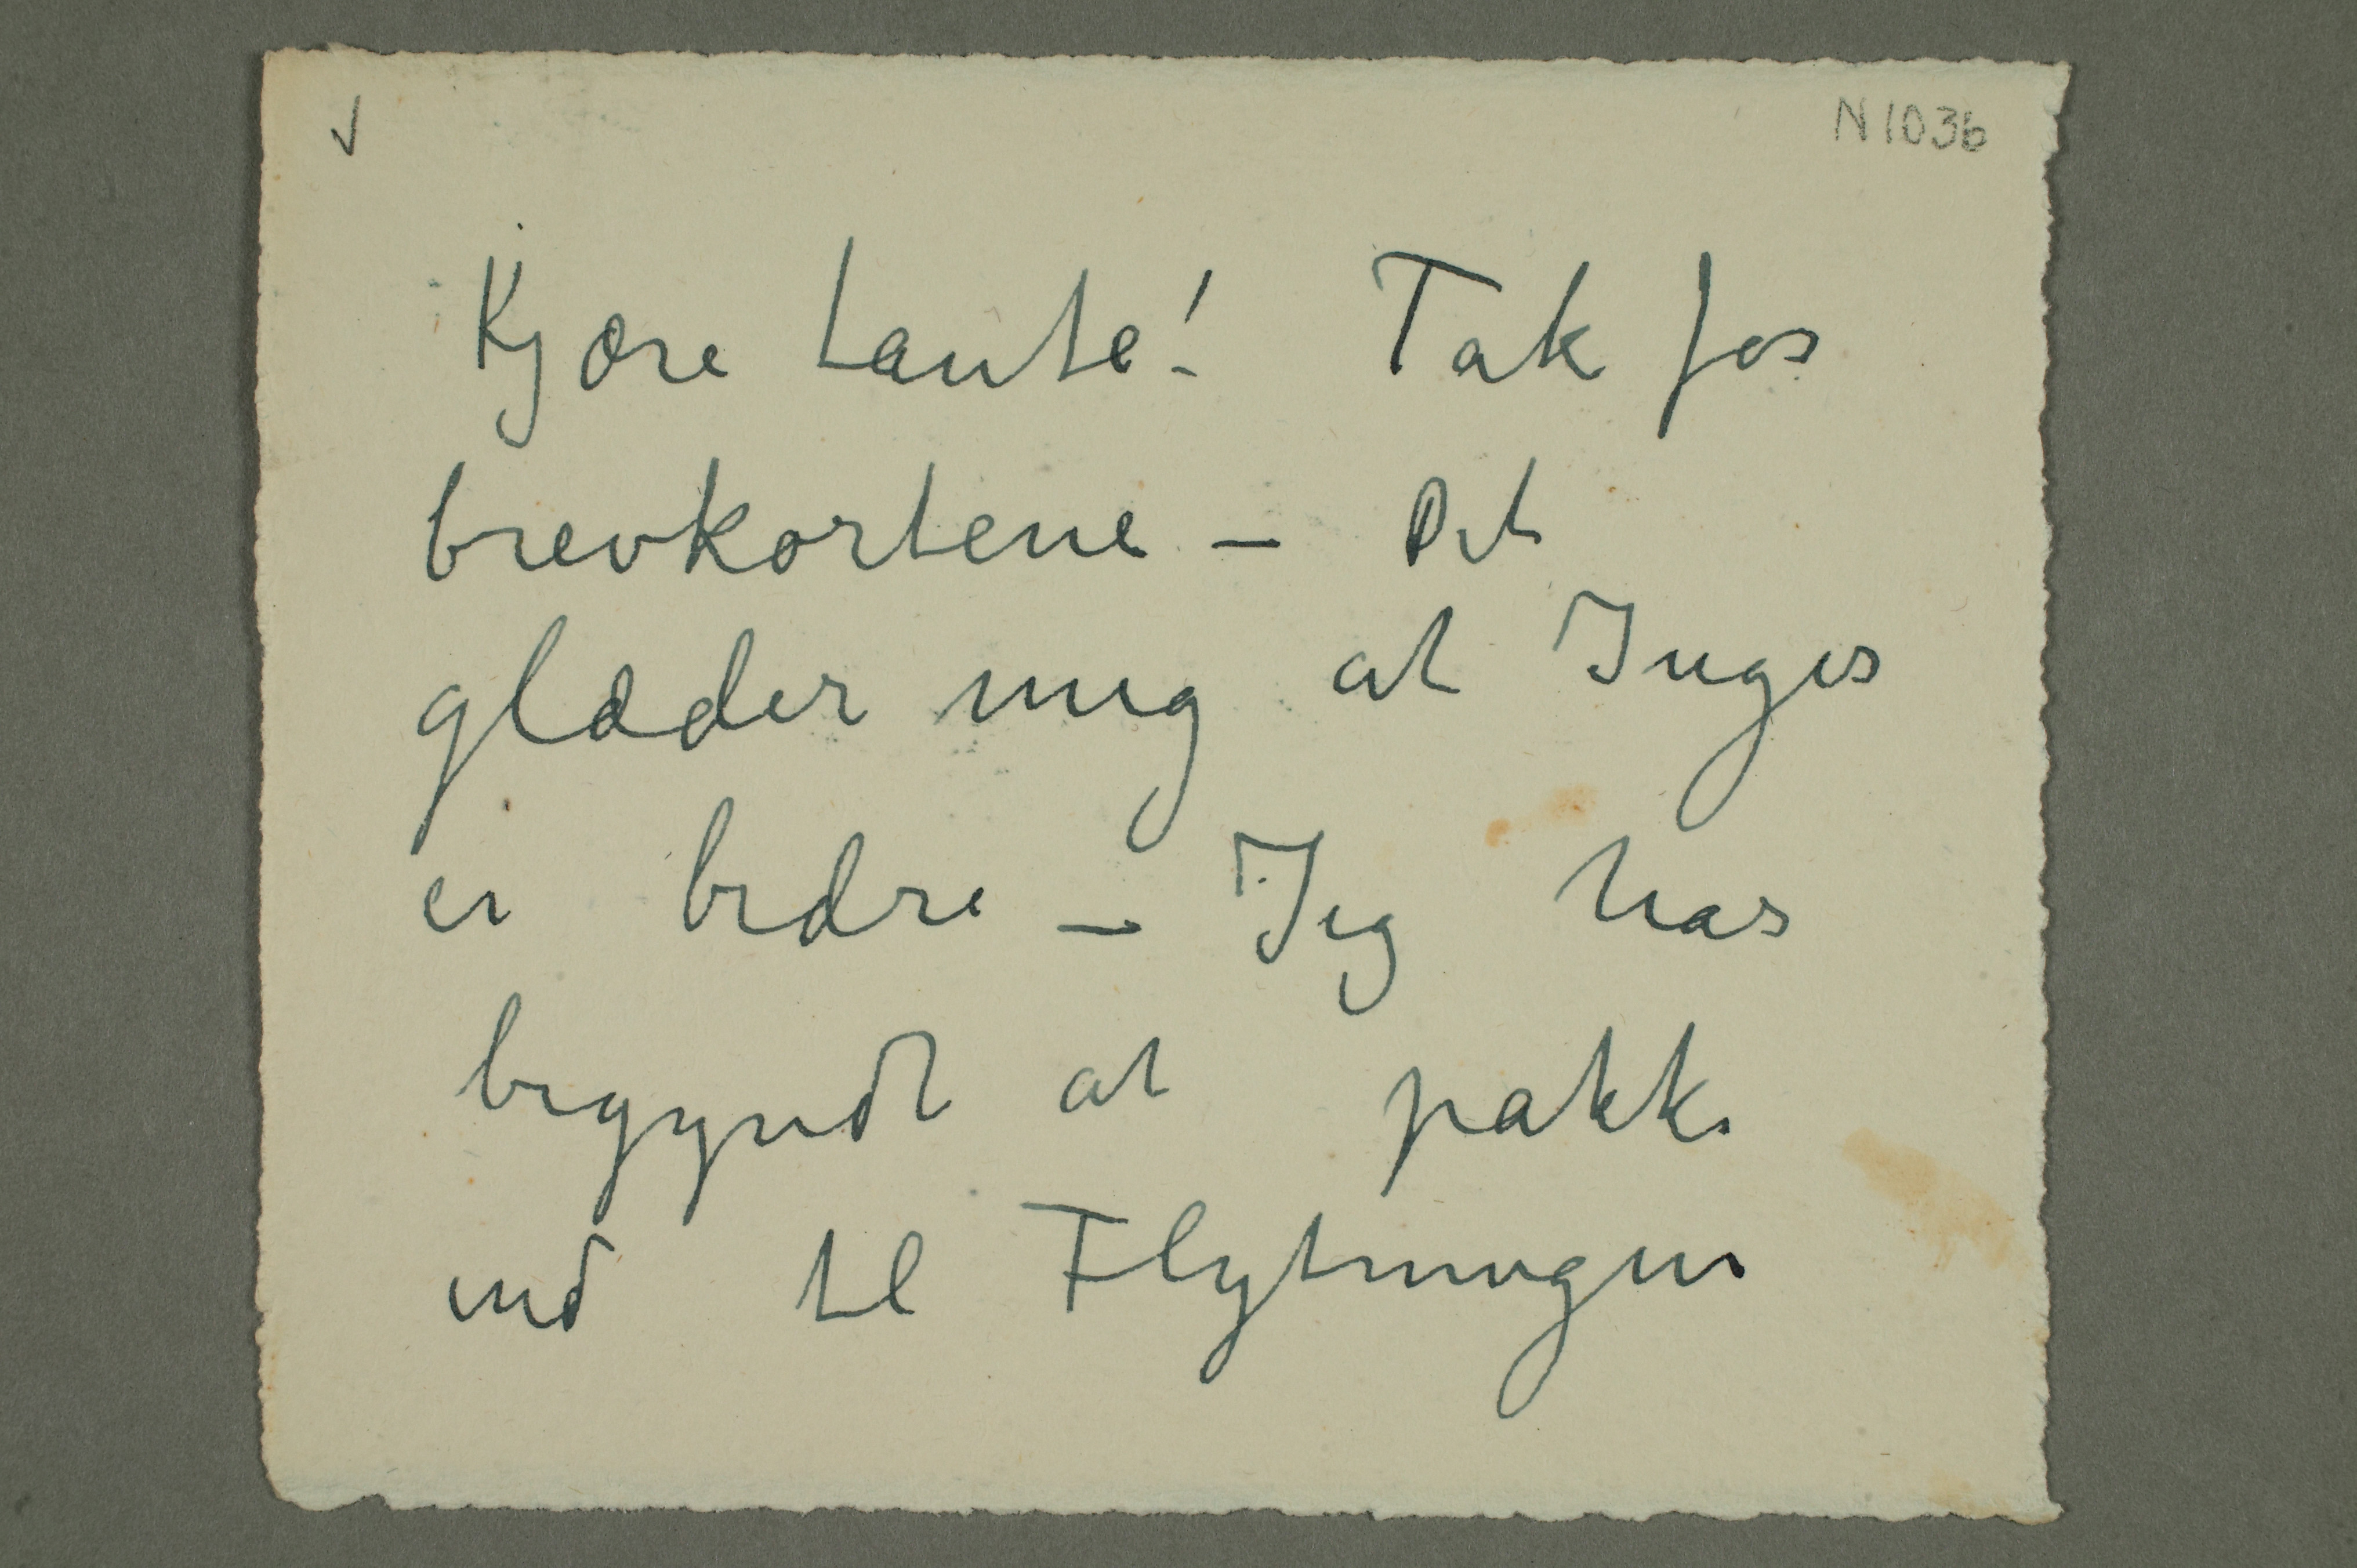 N 1036
Kjære tante! Tak for
brevkortene – Det
glæder mig at Inger
er bedre – Jeg har
begyndt at pakke
ind til Flytningen